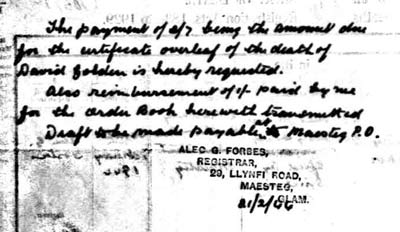 The payment of 2/7 being the amount due
for the certificate overleaf of the death of
David Golden is hereby requested.
Also reimbursement of 1/- paid by me
for the order Book herewith transmitted
Draft to be made payable at Maesteg P.O.
ALEC G. FORBES,
REGISTRAR,
29, LLYNFI ROAD,
MAESTEG,
GLAM.
21/2/66